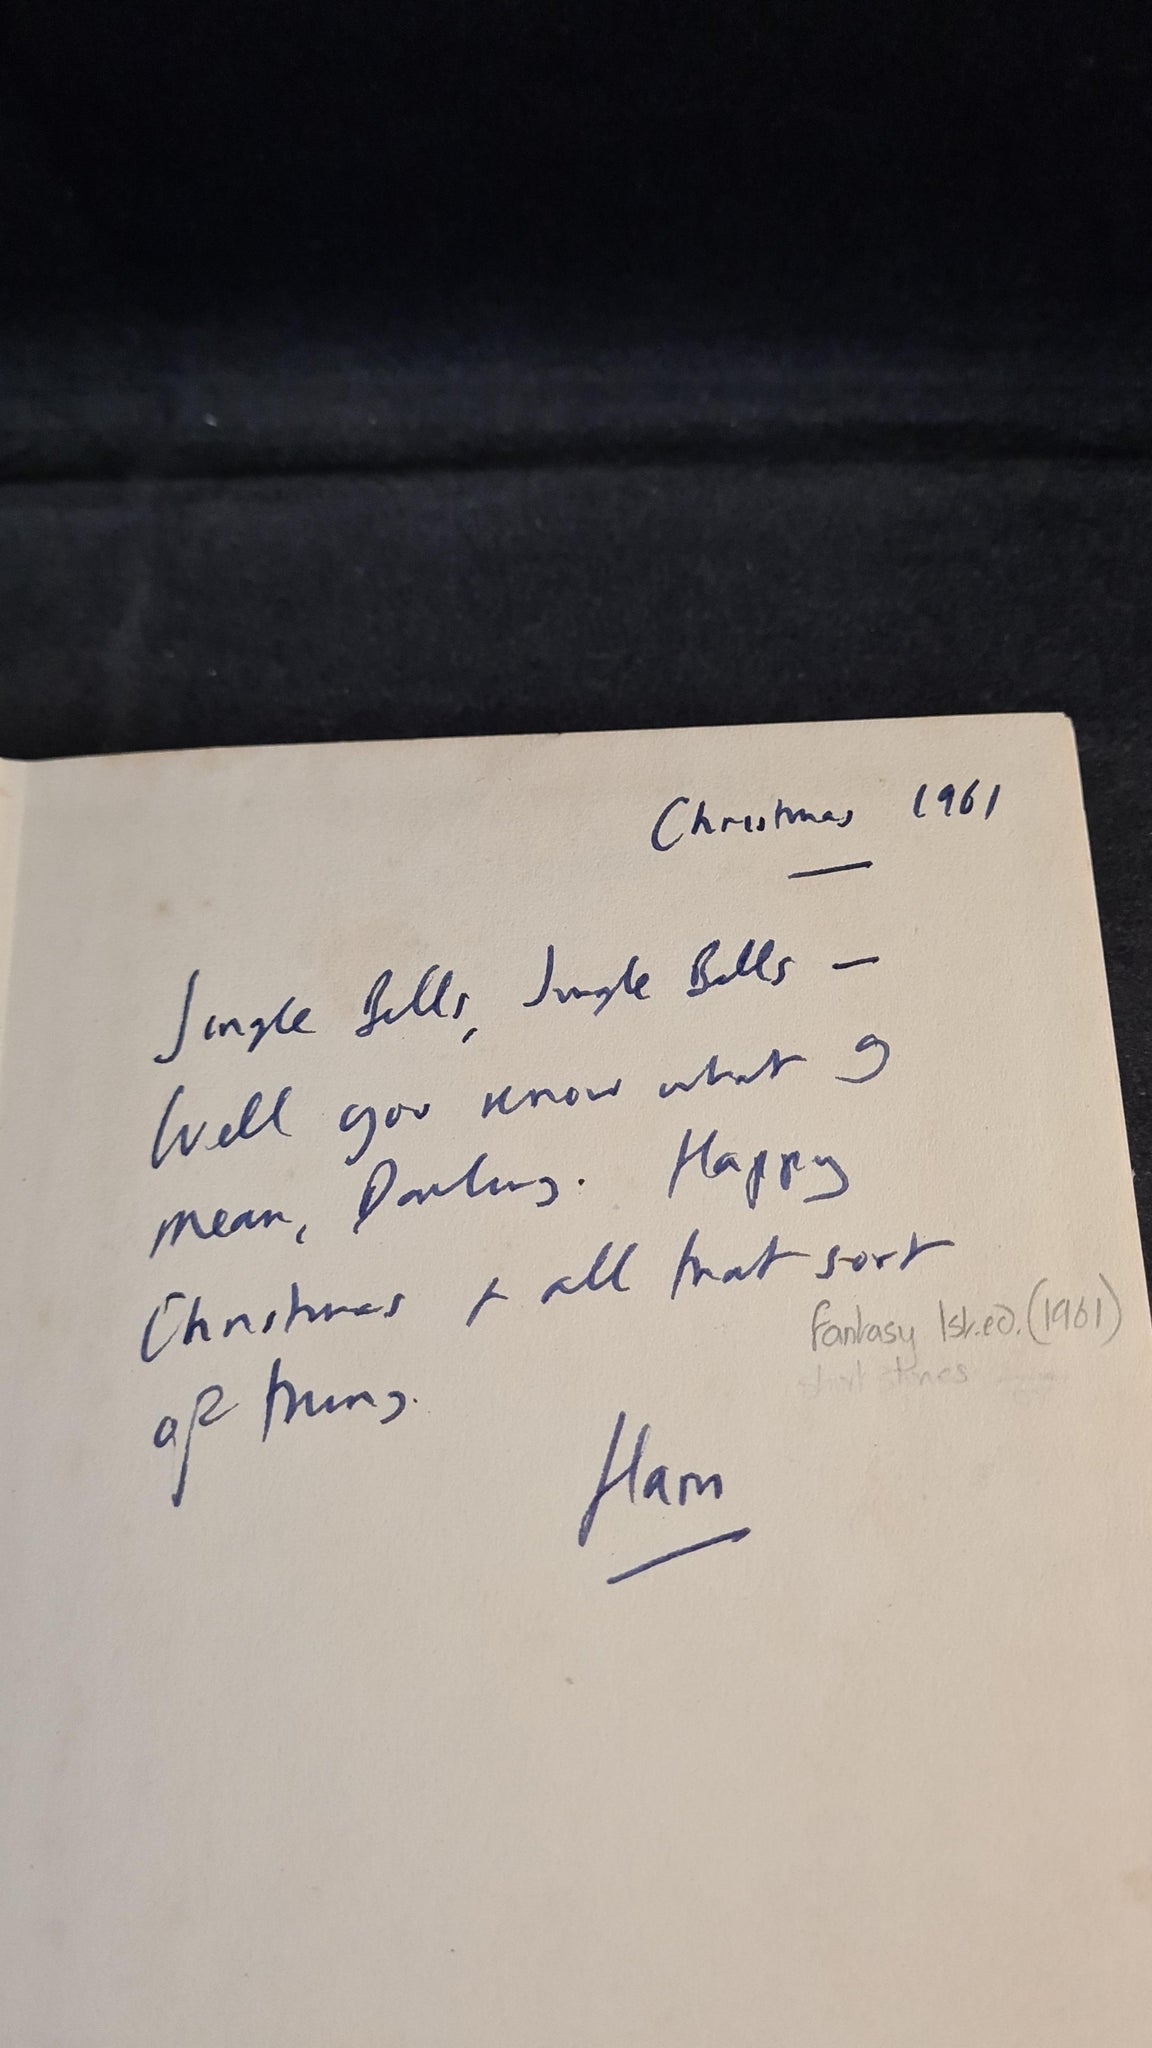 Christmas 1961
Jingle Bells, Jingle Bells —
Well you know what I
mean, Darling. Happy
Christmas + all that sort
of thing.
Fantasy 1st.ed. (1961)
short stories
Ham